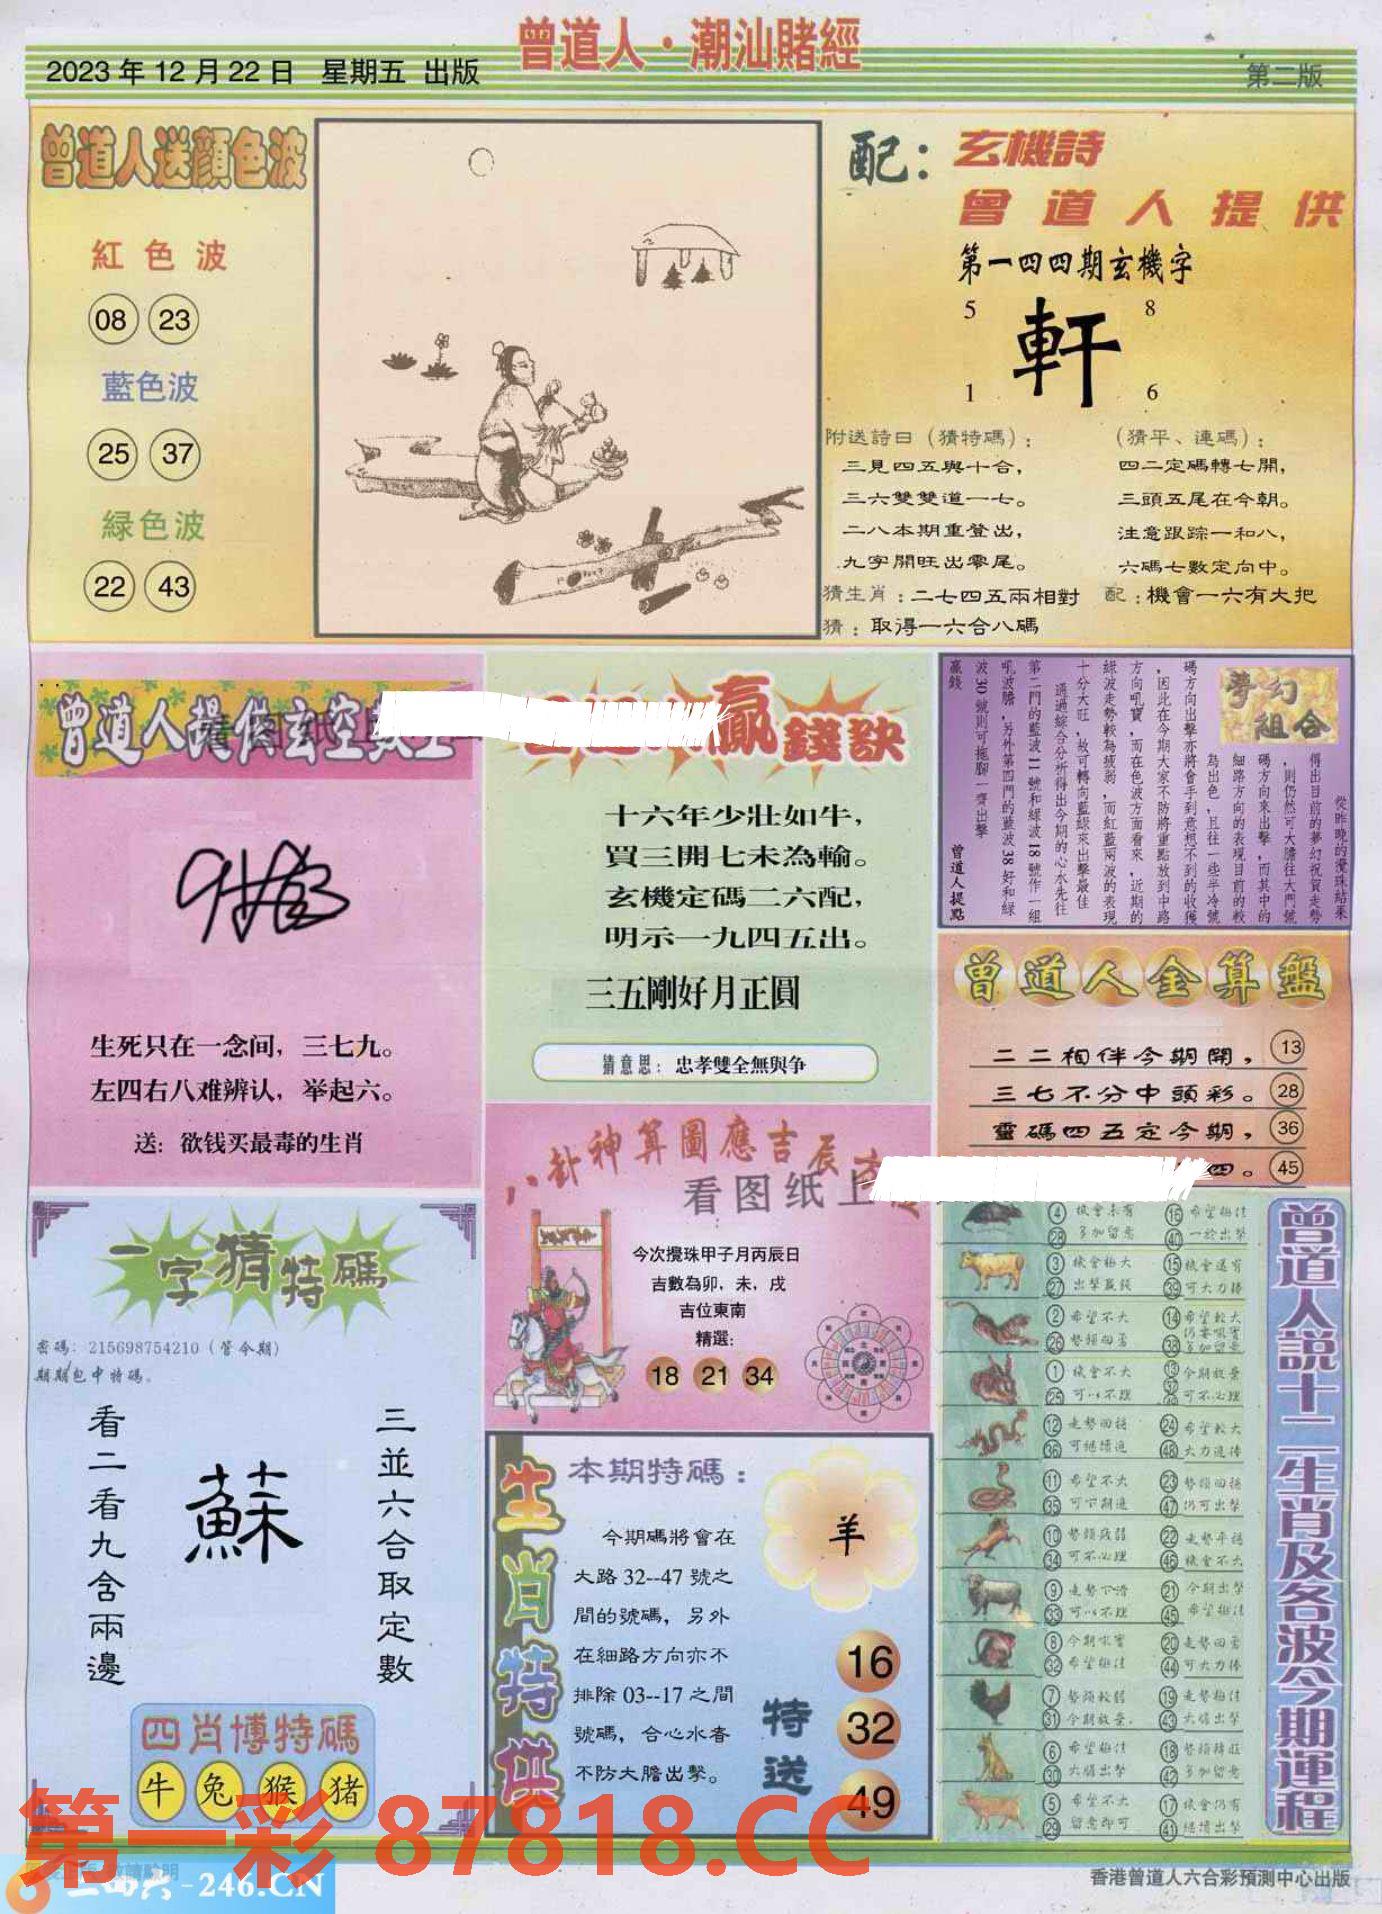 曾道人·潮汕賭經
2023年12月22日 星期五 出版
第二版
曾道人送顔色波
紅色波
08 23
藍色波
25 37
緑色波
22 43
配：玄機詩
曾道人提供
第一四四期玄機字
5 8
軒
1 6
附送詩曰（猜特碼）：
三見四五與十合，
三六雙雙道一七。
二八本期重登出，
九字開旺出零尾。
（猜平、連碼）：
四二定碼轉七開，
三頭五尾在今朝。
注意跟踪一和八，
六碼七數定向中。
猜生肖：二七四五兩相對
配：機會一六有大把
猜：取得一六合八碼
曾道人提供玄空數
生死只在一念间，三七九。
左四右八难辨认，举起六。
送：欲钱买最毒的生肖
贏錢訣
十六年少壯如牛，
買三開七未為輸。
玄機定碼二六配，
明示一九四五出。
三五剛好月正圓
猜意思：忠孝雙全無與争
夢幻組合
從昨晚的攪珠結果
得出目前的夢幻祝賀走勢
，則仍然可大膽往大門號
碼方向來出擊，而其中的
細路方向的表現目前的較
為出色，且往一些半冷號
碼方向出擊亦將會手到意想不到的收獲
，因此在今期大家不防將重點放到中路
方向吼寶，而在色波方面看來，近期的
綠波走勢較為疲弱，而紅藍兩波的表現
十分大旺，故可轉向藍綠來出擊最佳
通過綜合分析得出今期的心水先往
第二門的藍波11號和綠波18號作一組
吼波膽，另外第四門的藍波38好和綠
波30號則可拖腳一齊出擊
贏錢
曾道人提點
曾道人金算盤
二二相伴今期開， 13
三七不分中頭彩。 28
靈碼四五定今期， 36
四。 45
八卦神算圖應吉辰
看图纸上
今次攪珠甲子月丙辰日
吉數為卯，未，戌
吉位東南
精選：
18 21 34
一字猜特碼
密碼：215698754210（管今期）
期期包中特碼。
看二看九含兩邊
蘇
三並六合取定數
四肖博特碼
牛 兔 猴 猪
生肖特供
本期特碼：
今期碼將會在
大路32--47號之
間的號碼，另外
在細路方向亦不
排除03--17之間
號碼，合心水者
不防大膽出擊。
羊
特送
16
32
49
曾道人説十二生肖及各波今期運程
4 機會未有 16 希望極佳
28 多加留意 40 一於出擊
3 機會極大 15 機會還有
27 出擊贏錢 39 可大力捧
2 希望不大 14 希望較大
26 勢頭回勇 38 多加留意
1 機會不大 13 今期放棄
25 可以不理 可不必理
12 走勢回穩 24 希望較大
36 可繼續追 48 大力追捧
11 希望不大 23 勢頭回穩
35 可下期追 47 仍可出擊
10 勢頭疲弱 22 走勢平穩
34 可不必理 46 機會不大
9 走勢下滑 21 今期出擊
33 可以不理 45 希望極佳
8 今期吼實 20 走勢回勇
32 希望極佳 44 可大力捧
7 勢頭較弱 19 走勢極佳
31 今期放棄. 43 大膽出擊
6 希望極佳 18 勢頭轉旺
30 大膽出擊 42 多加留意
5 希望不大 17 機會仍有
29 留意即可 41 繼續出擊
第一彩 87818.CC
二四六-246.CN
香港曾道人六合彩預測中心出版